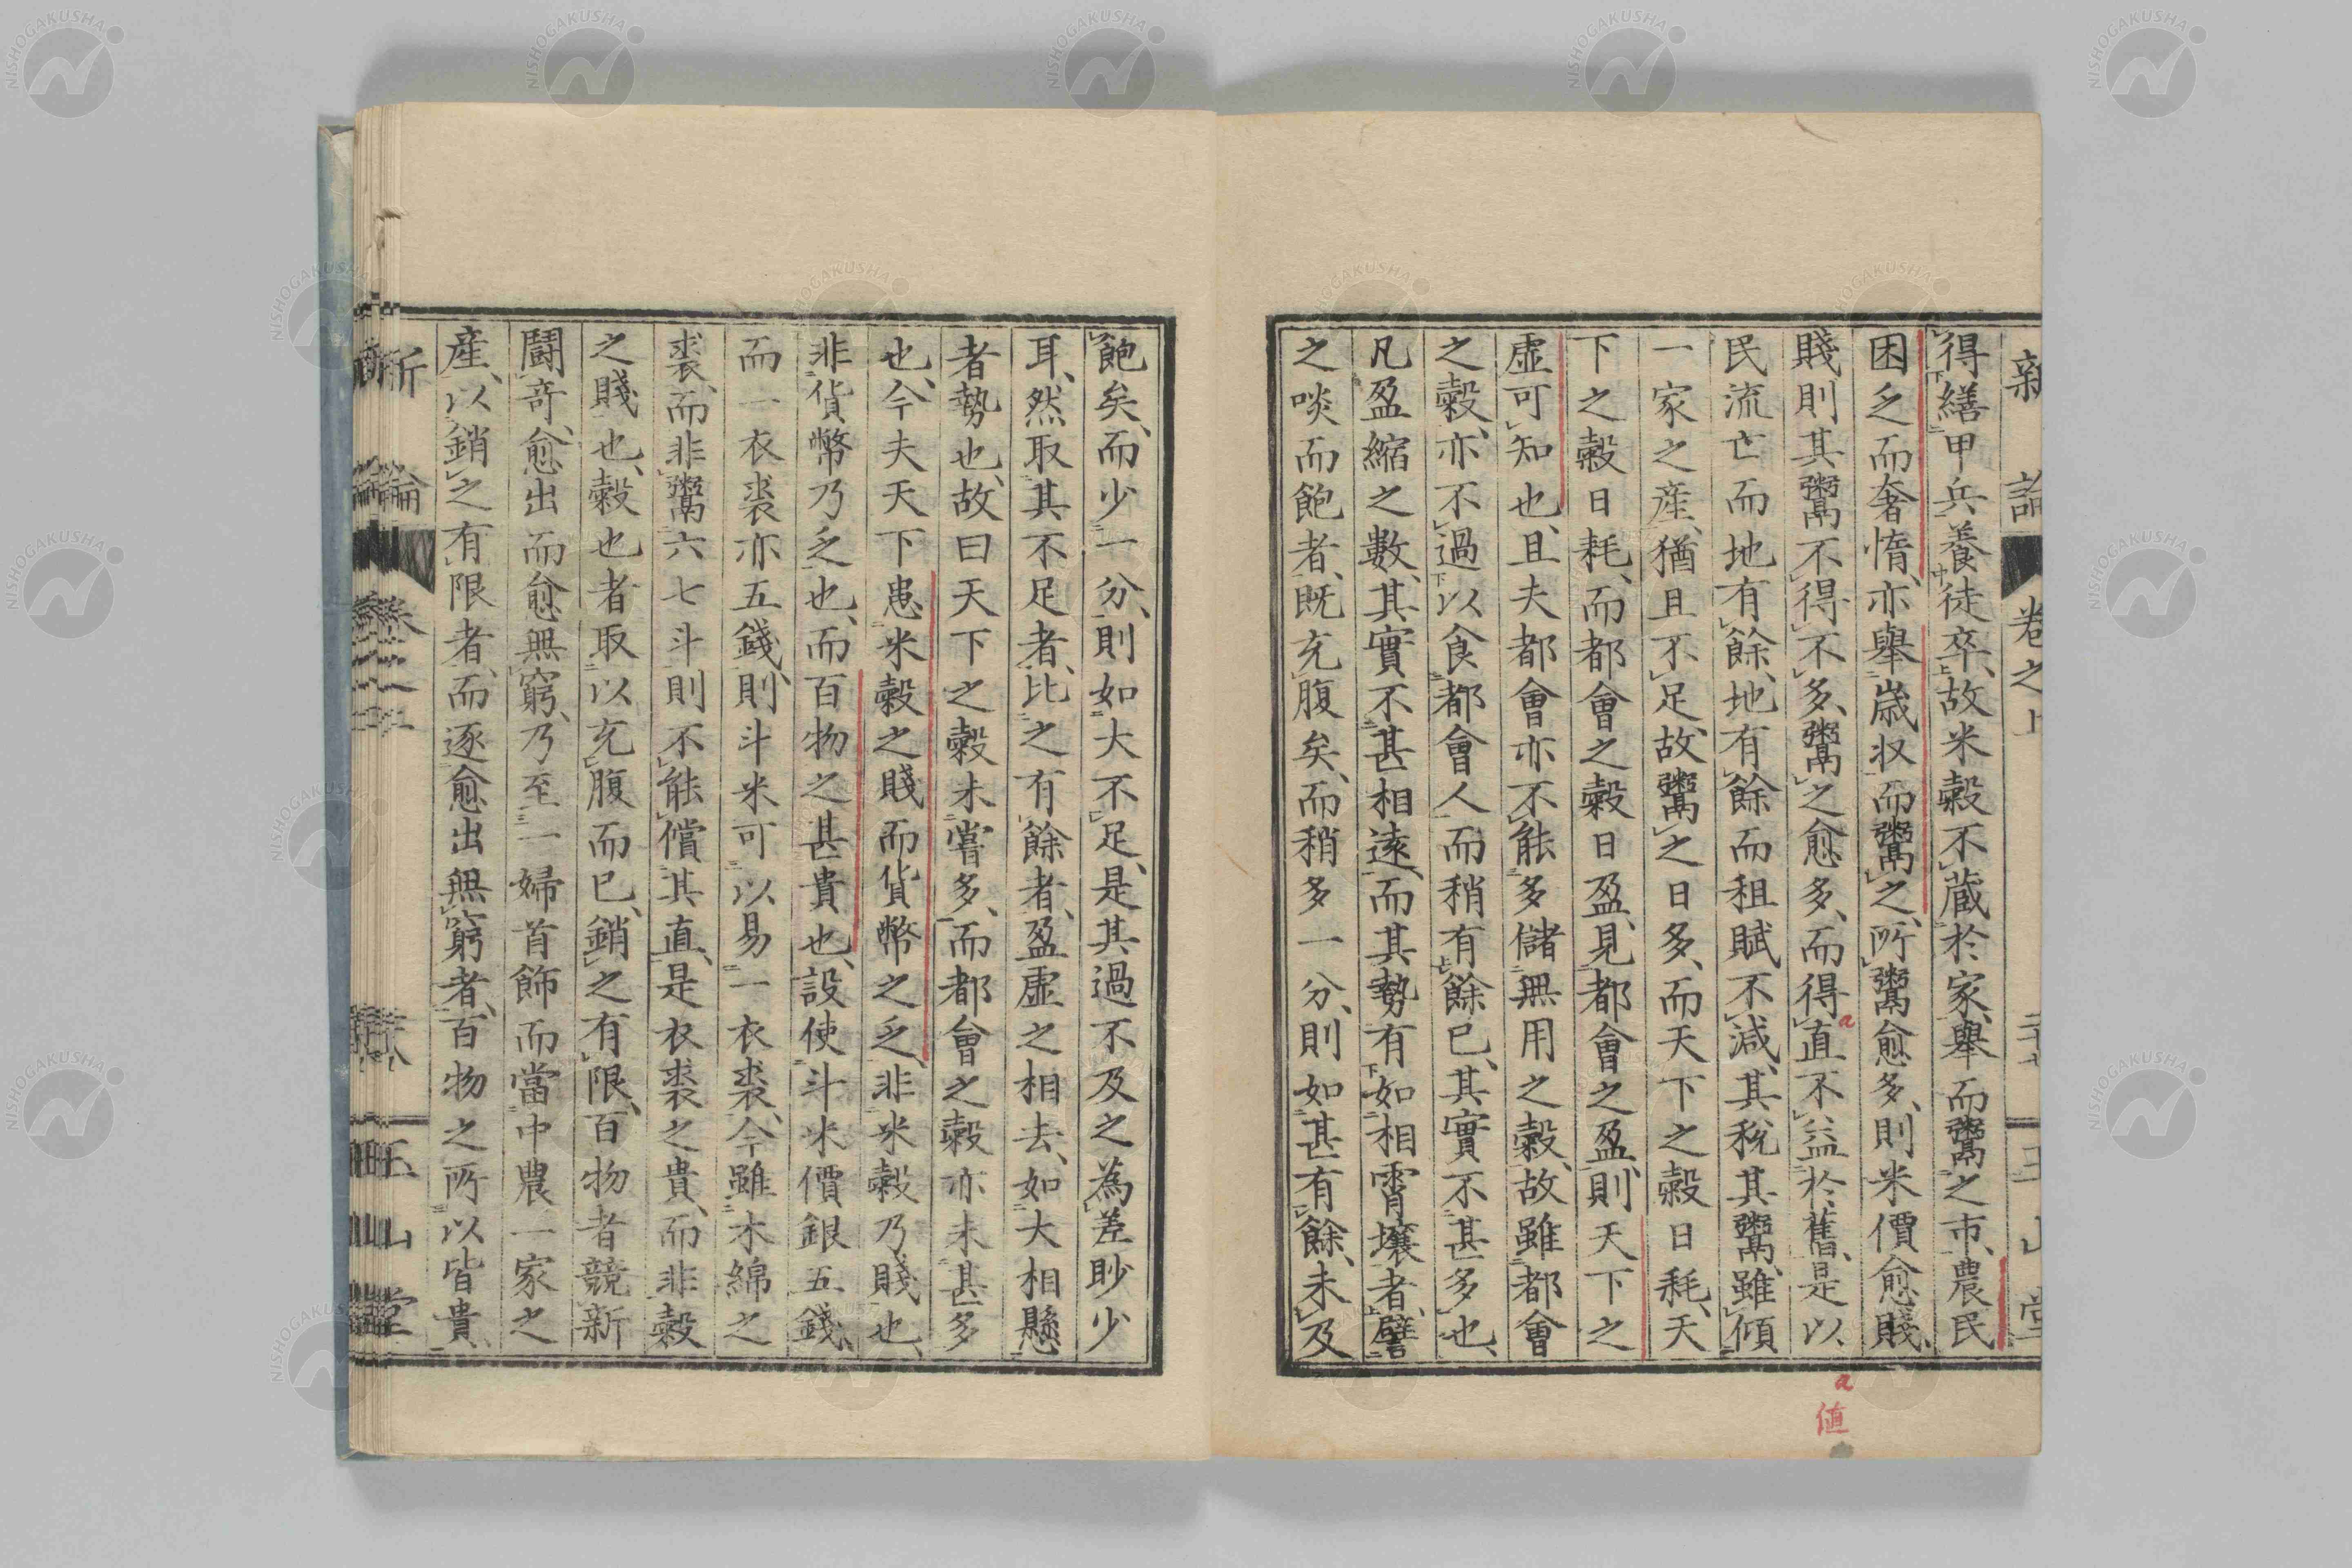 新論 卷之上
得繕甲兵、養徒卒、故米穀不藏於家、舉而鬻之市、農民
困乏而奢惰、亦舉歲收而鬻之、所鬻愈多、則米價愈賤、
賤則其鬻不得不多、鬻之愈多、而得直不益於舊、是以
民流亡而地有餘、地有餘而租賦不減、其稅其鬻、雖傾
一家之産、猶且不足、故鬻之日多、而天下之穀日耗、天
下之穀日耗、而都會之穀日盈、見都會之盈、則天下之
虛可知也、且夫都會亦不能多儲無用之穀、故雖都會
之穀、亦不過以食都會人而稍有餘已、其實不甚多也、
凡盈縮之數、其實不甚相遠、而其勢有如相霄壤者、譬
之啖而飽者、既充腹矣、而稍多一分、則如甚有餘、未及
飽矣、而少一分、則如大不足、是其過不及之為差眇少
耳、然取其不足者、比之有餘者、盈虛之相去、如大相懸
者勢也、故曰天下之穀未嘗多、而都會之穀亦未甚多
也、今夫天下患米穀之賤而貨幣之乏、非米穀乃賤也、
非貨幣乃乏也、而百物之甚貴也、設使斗米價銀五錢、
而一衣裘亦五錢、則斗米可以易一衣裘、今雖木綿之
裘、而非鬻六七斗則不能償其直、是衣裘之貴、而非穀
之賤也、穀也者取以充腹而已、銷之有限、百物者競新
鬪奇、愈出而愈無窮、乃至一婦首飾而當中農一家之
産、以銷之有限者、而逐愈出無窮者、百物之所以皆貴、
玉山堂
a
a
値
NISHOGAKUSHA